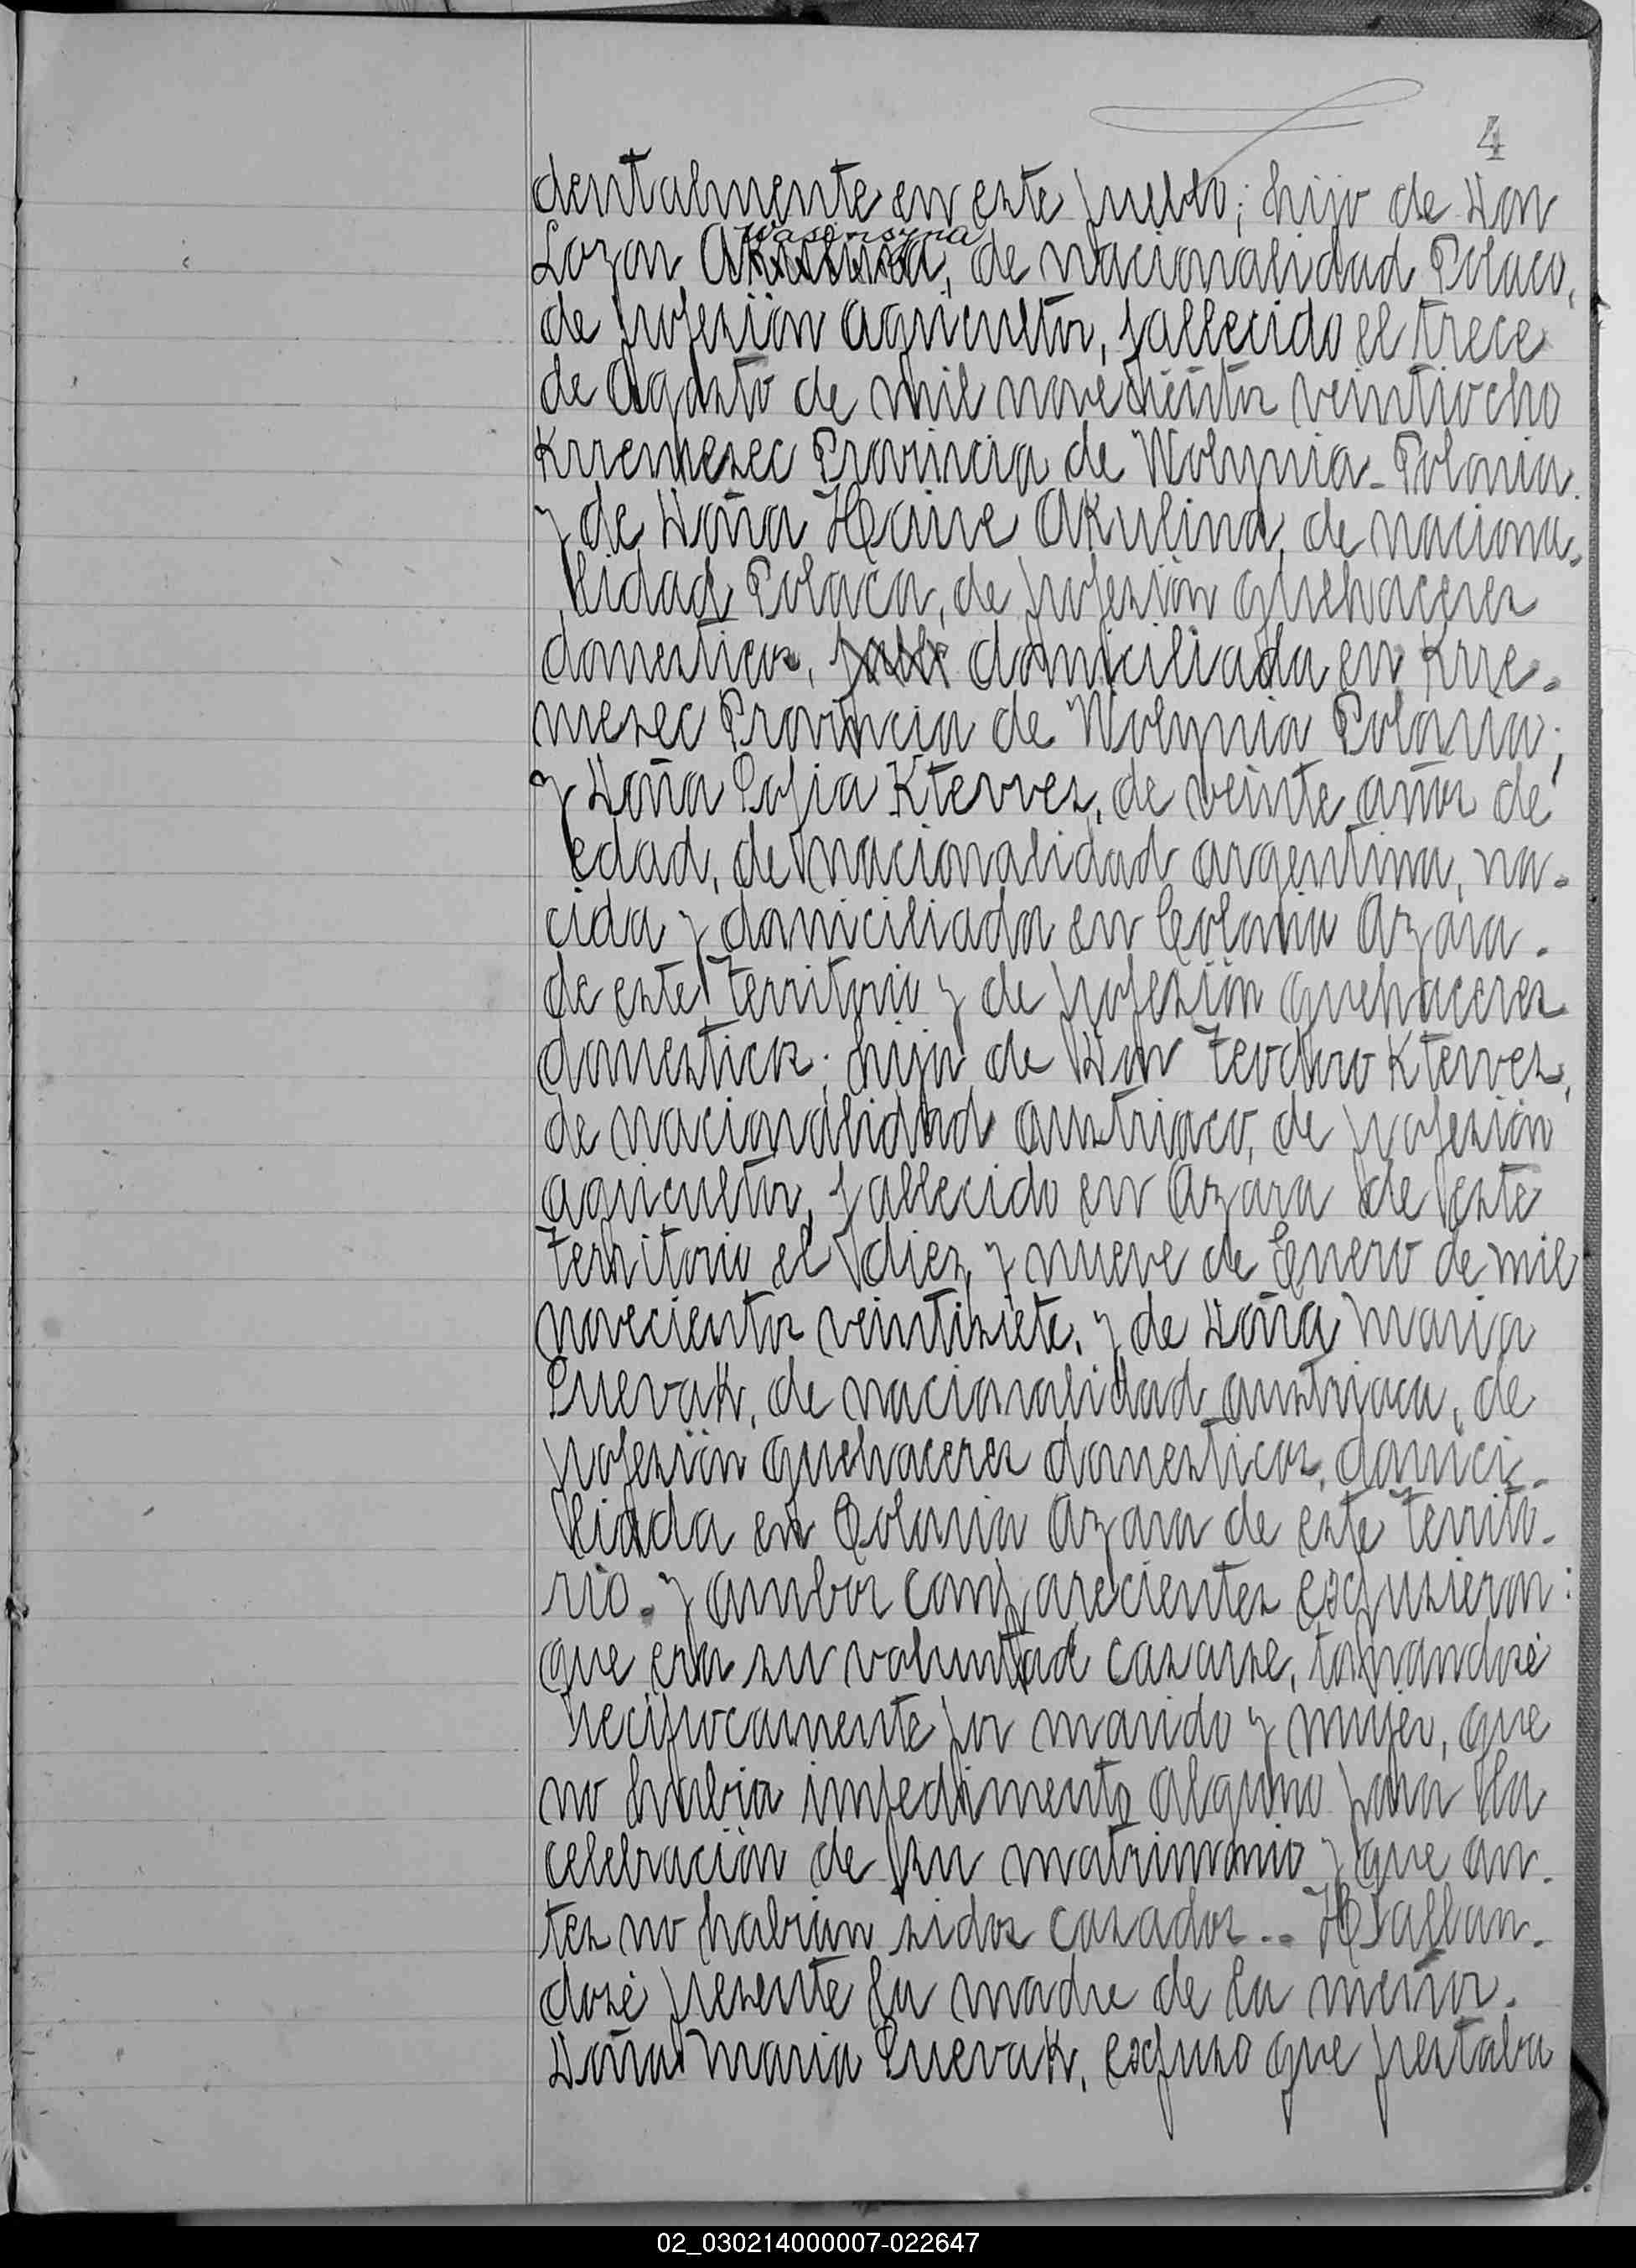 4
dentalmente en este pueblo; hijo de Don
Wasinszna
Lozon Akulina, de nacionalidad Polaco,
de profesión agricultor, fallecido el trece
de Agosto de mil novecientos veintiocho
Krremesec Provincia de Wolynia - Polonia
y de Doña Haine Akulina, de naciona-
lidad Polaca, de profesión quehaceres
domesticos, domiciliada en Krre-
mesec Provincia de Wolynia Polonia;
y Doña Sofia Kterves, de veinte años de
edad, de nacionalidad argentina, na-
cida y domiciliada en Colonia Azara.
de este territorio y de profesión quehaceres
domesticos; hija de Don Teodoro Kterves,
de nacionalidad austriaco, de profesión
agricultor, fallecido en Azara de este
territorio el diez y nueve de Enero de mil
novecientos veintisiete, y de Doña Maria
Suevak, de nacionalidad austriaca, de
profesión quehaceres domesticos, domici-
liada en Colonia Azara de este territo-
rio. y ambos comparecientes expusieron:
que era su voluntad casarse, tomandosé
reciprocamente por marido y mujer, que
no habia impedimento alguno para la
celebración de su matrimonio y que an-
tes no habian sidos casados.. Hallan-
dosé presente la madre de la menor.
Doña Maria Suevak, expuso que prestaba
02_030214000007-022647